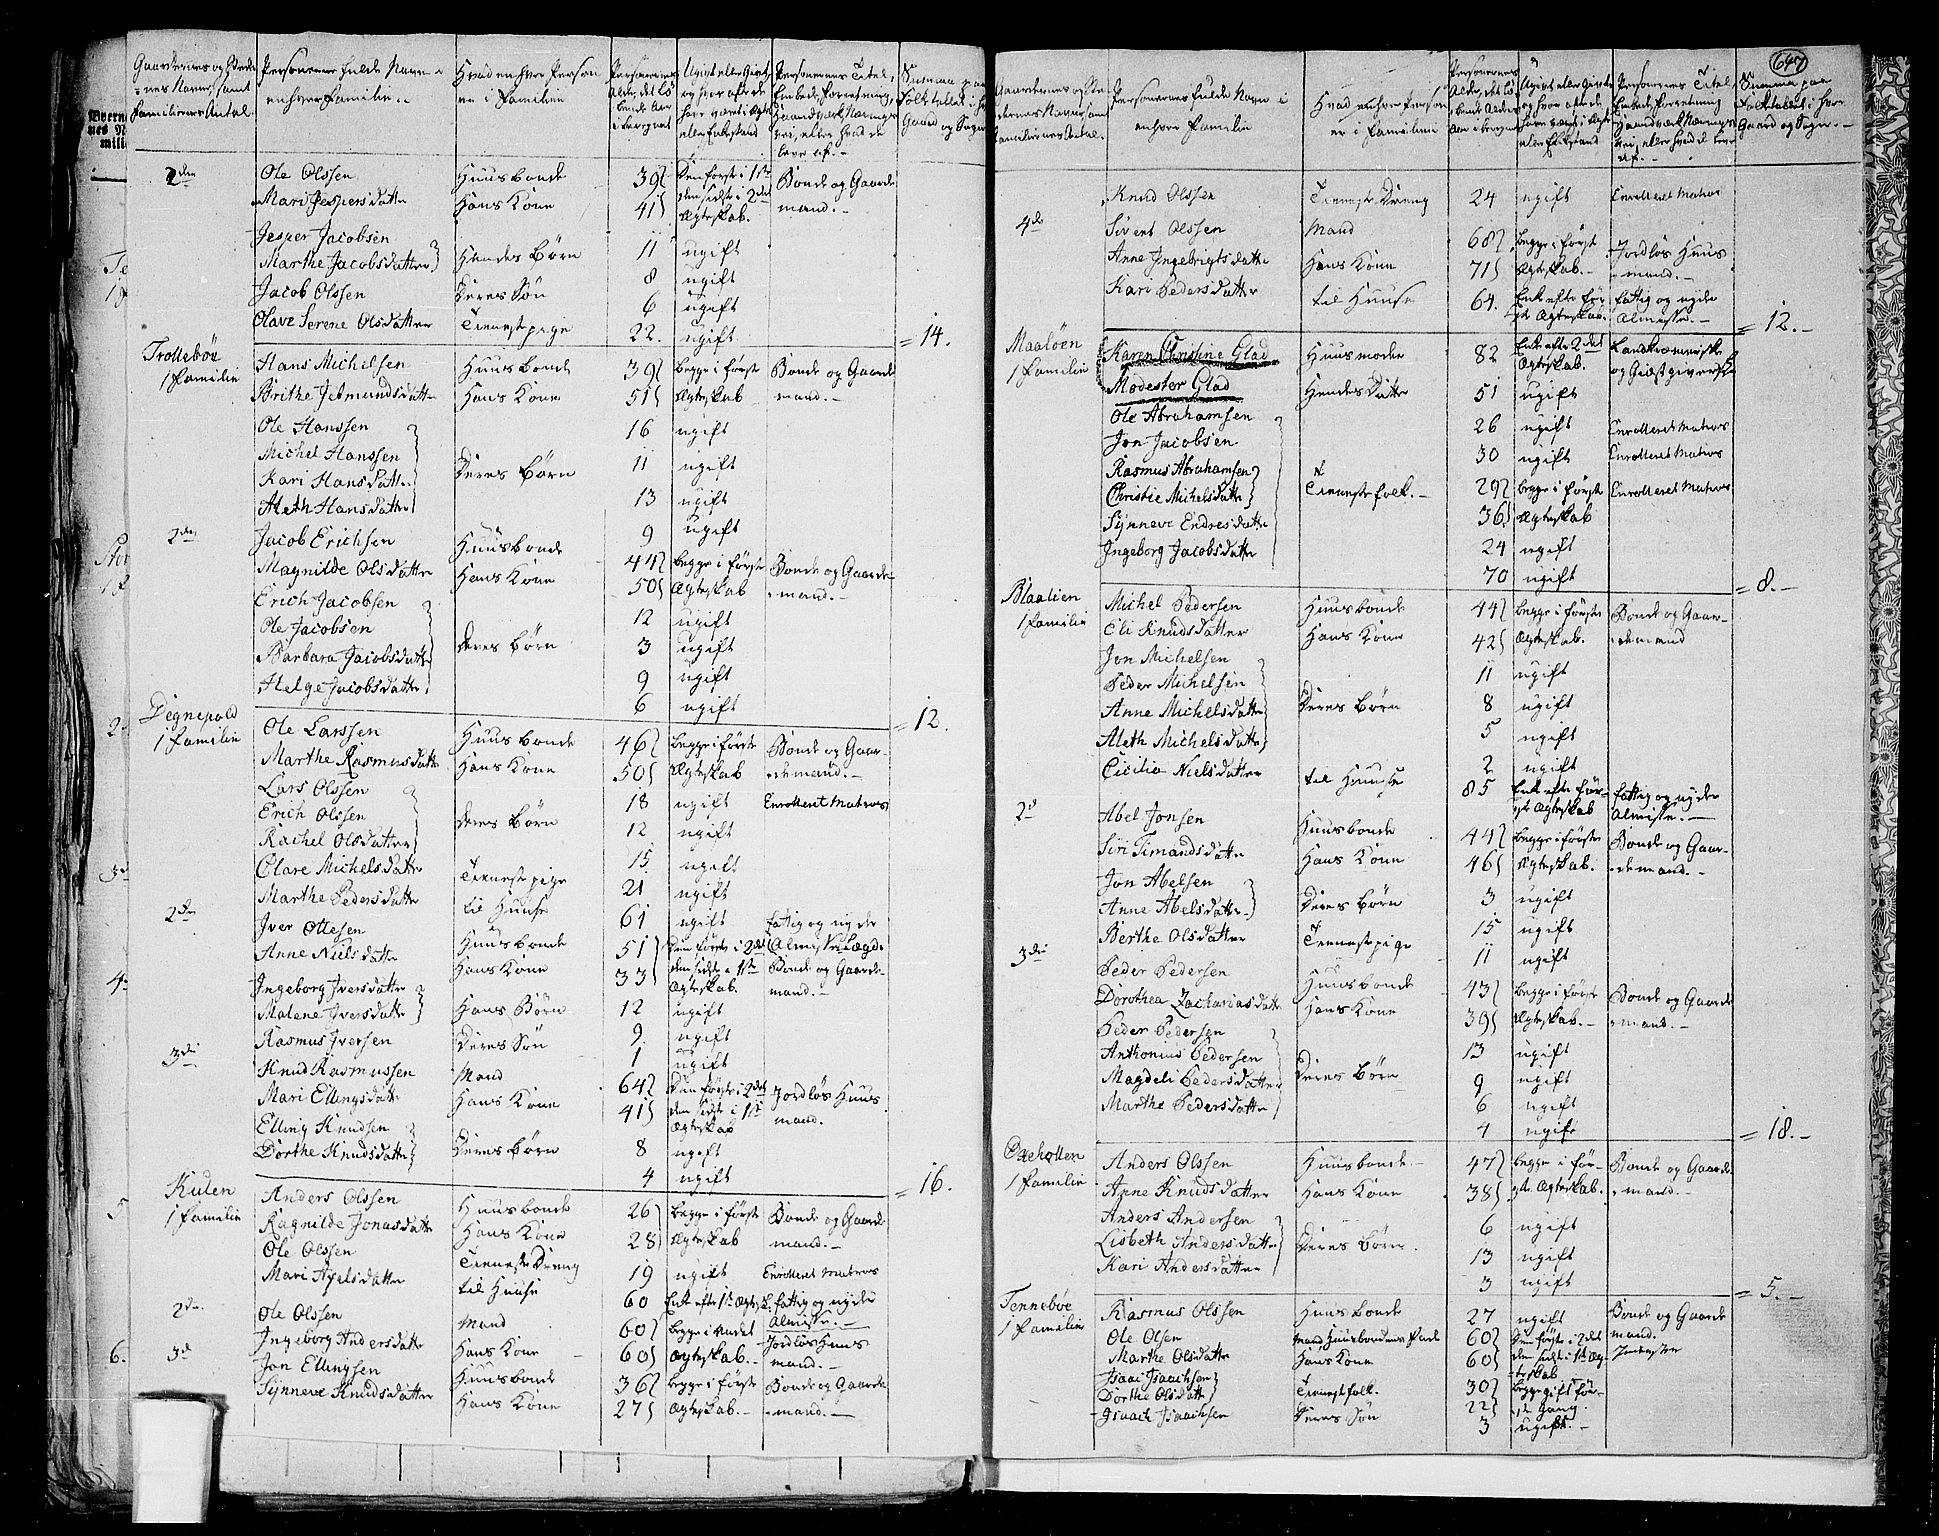 647
Gaardernes og Stedernes Navne, samt Familiernes Antal.
Personernes fulde Navne i enhver Familie.
Hvad enhver Person er i Familien
Personernes Alder, det løbende Alders Aar i beregnet
Ugivt eller Givt, og hvor ofte de have været i Ægte eller Enkestand
Personernes Titel, Embede, Forretning, Haandværk, Nærings Vei, eller hvad de leve af.
Summa paa Folketallet i hver Gaard og Sogn
2den
Ole Olssen Huusbonde 39 Den første i 1ste Bonde og Gaarde
Mari Jespersdatter Hans Kone 41 den sidste i 2det Ægteskab. mand.
Jesper Jacobsen 11 ugift
Marthe Jacobsdatter Hendes Børn 8 ugift
Jacob Olssen Deres Søn 6 ugift
Olave Serene Olsdatter Tienestpige 22. ugift = 14.
Trollebøe
1 Familie
Hans Michelsen Huusbonde 39 begge i første Bonde og Gaarde
Birithe Jetmundsdatter Hans Kone 51 Ægteskab mand.
Ole Hanssen 16 ugift
Michel Hanssen 11 ugift
Kari Hansdatter Deres Børn 13 ugift
Aleth Hansdatter 9 ugift
2den
Jacob Erichsen Huusbonde 44 begge i første Bonde og Gaarde
Magnilde Olsdatter Hans Kone 50 Ægteskab mand.
Erich Jacobsen 12 ugift
Ole Jacobsen 3 ugift
Barbara Jacobsdatter Deres Børn 9 ugift
Helge Jacobsdatter 6 ugift = 12.
Degnepold
1 Familie
Ole Larssen Huusbonde 46 begge i første Bonde og Gaar-
Marthe Rasmusdatter Hans Kone 50 Ægteskab demand.
Lars Olssen 18 ugift Enrolleret Matros
Erich Olssen Deres Børn 12 ugift
Rachel Olsdatter 15 ugift
Clare Michelsdatter Tienestpige 21 ugift
Marthe Pedersdatter til Huuse 61 ugift fattig og nyder Almisse
2den
Iver Ottesen Huusbonde 51 Den første i 2det
Anne Nielsdatter Hans Kone 33 den sidste i 1ste Ægteskab. Bonde og Gaarde mand.
Ingeborg Iversdatter 12 ugift
Malene Iversdatter Hans Børn 9 ugift
Rasmus Iversen Deres Søn 1 ugift
3die
Knud Rasmussen Mand 64 Den første i 2det Jordløs Huus
Mari Ellingsdatter Hans Kone 41 den sidste i 1ste Ægteskab mand.
Elling Knudsen Deres Børn 8 ugift
Dorthe Knudsdatter 4 ugift = 16.
Kulen
1 Familie
Anders Olssen Huusbonde 26 begge i første Bonde og Gaarde
Ragnilde Jonasdatter Hans Kone 28 Ægteskab mand.
Ole Olssen Tieneste Dreng 19 ugift Enrolleret Matros
Mari Axelsdatter til Huuse 60 Enke efter 1ste Ægtesk. fattig og nyder Almisse.
2den
Ole Olssen Mand 60 begge i andet Jordløs Huus
Ingeborg Andersdatter Hans Kone 60 Ægteskab. mand.
3die
Jon Ellingsen Huusbonde 36 begge i første Bonde og Gaarde
Synneve Knudsdatter Hans Kone 27 Ægteskab. mand.
Knud Olssen Tieneste Dreng 24 ugift Enrolleret Matros
4de
Sivert Olssen Mand 68 begge i første Jordløs Huus
Anne Ingebrigtsdatter Hans Kone 71 Ægteskab. mand.
Kari Pedersdatter til Huuse 64. Enke efter første Ægteskab. fattig og nyder Almisse. = 12.
Maaløen
1 Familie
Karen Christine Glad Huusmoder 82 Enke efter 2det Ægteskab. Landkræmerske og Giæstgiverske
Modester Glad Hendes Datter 51 ugift
Ole Abrahamsen 26 ugift Enrolleret Matros
Jon Jacobsen 30 ugift Enrolleret Matros
Rasmus Abrahamsen Tienestefolk. 29 begge i første Enrolleret Matros
Christie Michelsdatter 36 Ægteskab
Synneve Endresdatter 24 ugift
Ingeborg Jacobsdatter 70 ugift = 8.
Blaalien
1 Familie
Michel Pedersen Huusbonde 44 begge i første Bonde og Gaar-
Eli Knudsdatter Hans Kone 42 Ægteskab. demand
Jon Michelsen 11 ugift
Peder Michelsen 8 ugift
Anne Michelsdatter Deres Børn 5 ugift
Aleth Michelsdatter 2 ugift
Cicilia Nielsdatter til Huuse 85 Enke efter første Ægteskab fattig og nyder Almisse.
2d
Abel Jonsen Huusbonde 44 begge i første Bonde og Gaar-
Siri Simandsdatter Hans Kone 46 Ægteskab. demand.
Jon Abelsen 3 ugift
Anne Abelsdatter Deres Børn 15 ugift
Berthe Olsdatter Tienestpige 11 ugift
3die
Peder Pedersen Huusbonde 43 begge i første Bonde og Gaarde
Dorothea Zachariasdatter Hans Kone 39 Ægteskab. mand.
Peder Pedersen 13 ugift
Anthonius Pedersen 9 ugift
Magdeli Pedersdatter Deres Børn 6 ugift
Marthe Pedersdatter 4 ugift = 18.
Oxeholten
1 Familie
Anders Olssen Huusbonde 47 begge i før- Bonde og Gaarde
Anne Knudsdatter Hans Kone 38 ste Ægteskab. mand.
Anders Andersen 6 ugift
Lisbeth Andersdatter Deres Børn. 13 ugift
Kari Andersdatter 3 ugift = 5.
Tennebøe
1 Familie
Rasmus Olssen Huusbonde 27 ugift Bonde og Gaarde mand.
Ole Olsen Mand Huusbondens Fader 60 Den første i 2det
Marthe Olsdatter Hans Kone 60 den sidste i 1ste Ægteskab
Isaac Isaachsen Tienestfolk. 30 begge gift før-
Dorthe Olsdatter 22 ste Gang.
Isaach Isaachsen Deres Søn 3 ugift.